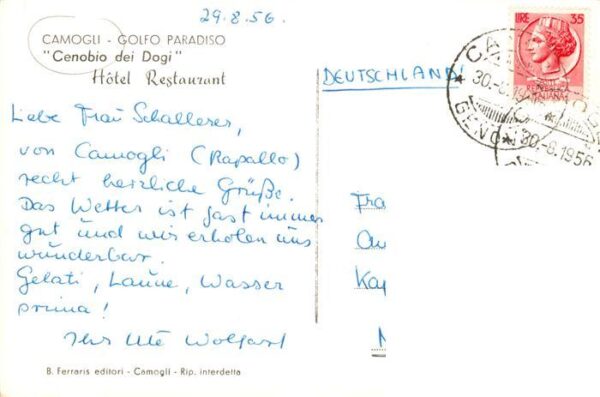 29.8.56.
CAMOGLI - GOLFO PARADISO
"Cenobio dei Dogi"
Hôtel Restaurant
Liebe Frau Schallerer,
von Camogli (Rapallo)
recht herzliche Grüße.
Das Wetter ist fast immer
gut und wir erholen uns
wunderbar.
Gelati, Laune, Wasser
prima!
Ihre Ute Wolfart
B. Ferraris editori - Camogli - Rip. interdetta
DEUTSCHLAND!
LIRE 35
REPVBBLICA
ITALIANA
30.-8.1956
GENO
Fra
Kap